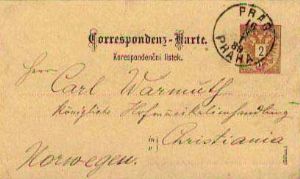 Correspondenz-Karte.
Korespondenční lístek.
PRAG
PRAHA
2
Herrn
Carl Warmuth
Königliche Hofmusikalienhandlung
in Christiania
Norwegen.